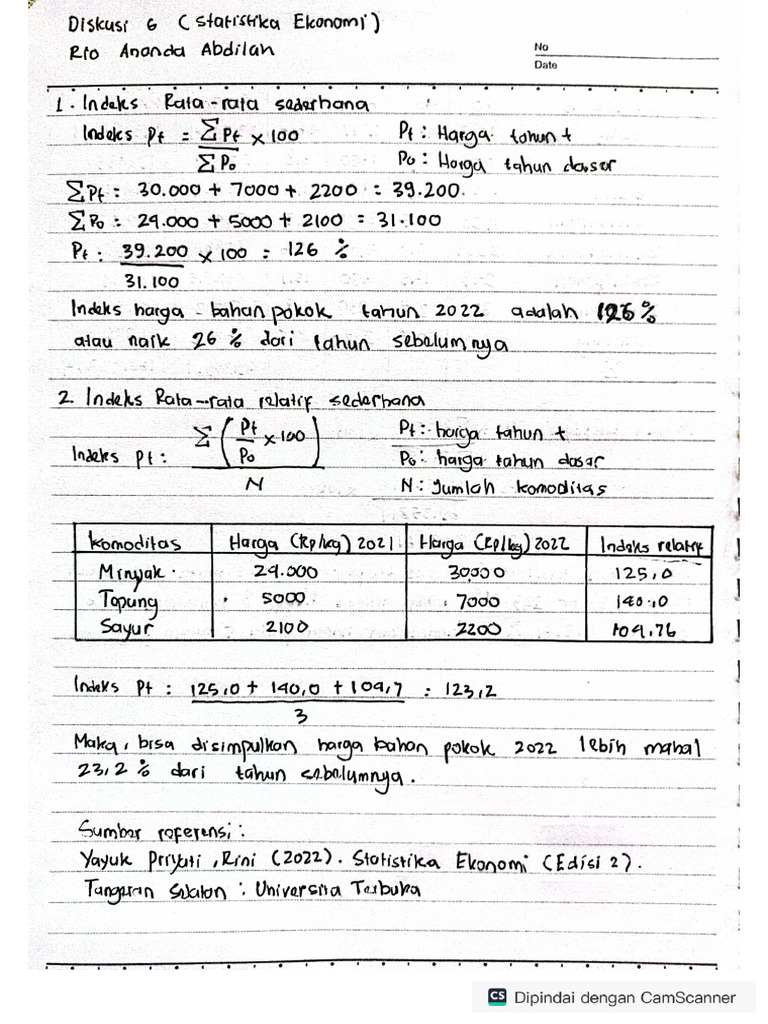 Diskusi 6 (Statistika Ekonomi)
Rio Ananda Abdilah
No
Date
1. Indeks Rata-rata sederhana
Indeks Pt = ΣPt / ΣPo x 100 Pt : Harga tahun t
Po : Harga tahun dasar
ΣPt : 30.000 + 7000 + 2200 = 39.200
ΣPo : 24.000 + 5000 + 2100 = 31.100
Pt : 39.200 / 31.100 x 100 = 126 %
Indeks harga bahan pokok tahun 2022 adalah 126%
atau naik 26 % dari tahun sebelumnya
2. Indeks Rata-rata relatif sederhana
Indeks Pt : Σ (Pt / Po x 100) / N Pt : harga tahun t
Po : harga tahun dasar
N : Jumlah komoditas
Komoditas Harga (Rp/kg) 2021 Harga (Rp/kg) 2022 Indeks relatif
Minyak 24.000 30.000 125,0
Topung 5000 7000 140,0
Sayur 2100 2200 104,76
Indeks Pt : 125,0 + 140,0 + 104,7 / 3 = 123,2
Maka, bisa disimpulkan harga bahan pokok 2022 lebih mahal
23,2 % dari tahun sebelumnya.
Sumber referensi :
Yayuk Priyati, Rini (2022). Statistika Ekonomi (Edisi 2).
Tangeran Selalon : Universita Terbuka
CS Dipindai dengan CamScanner